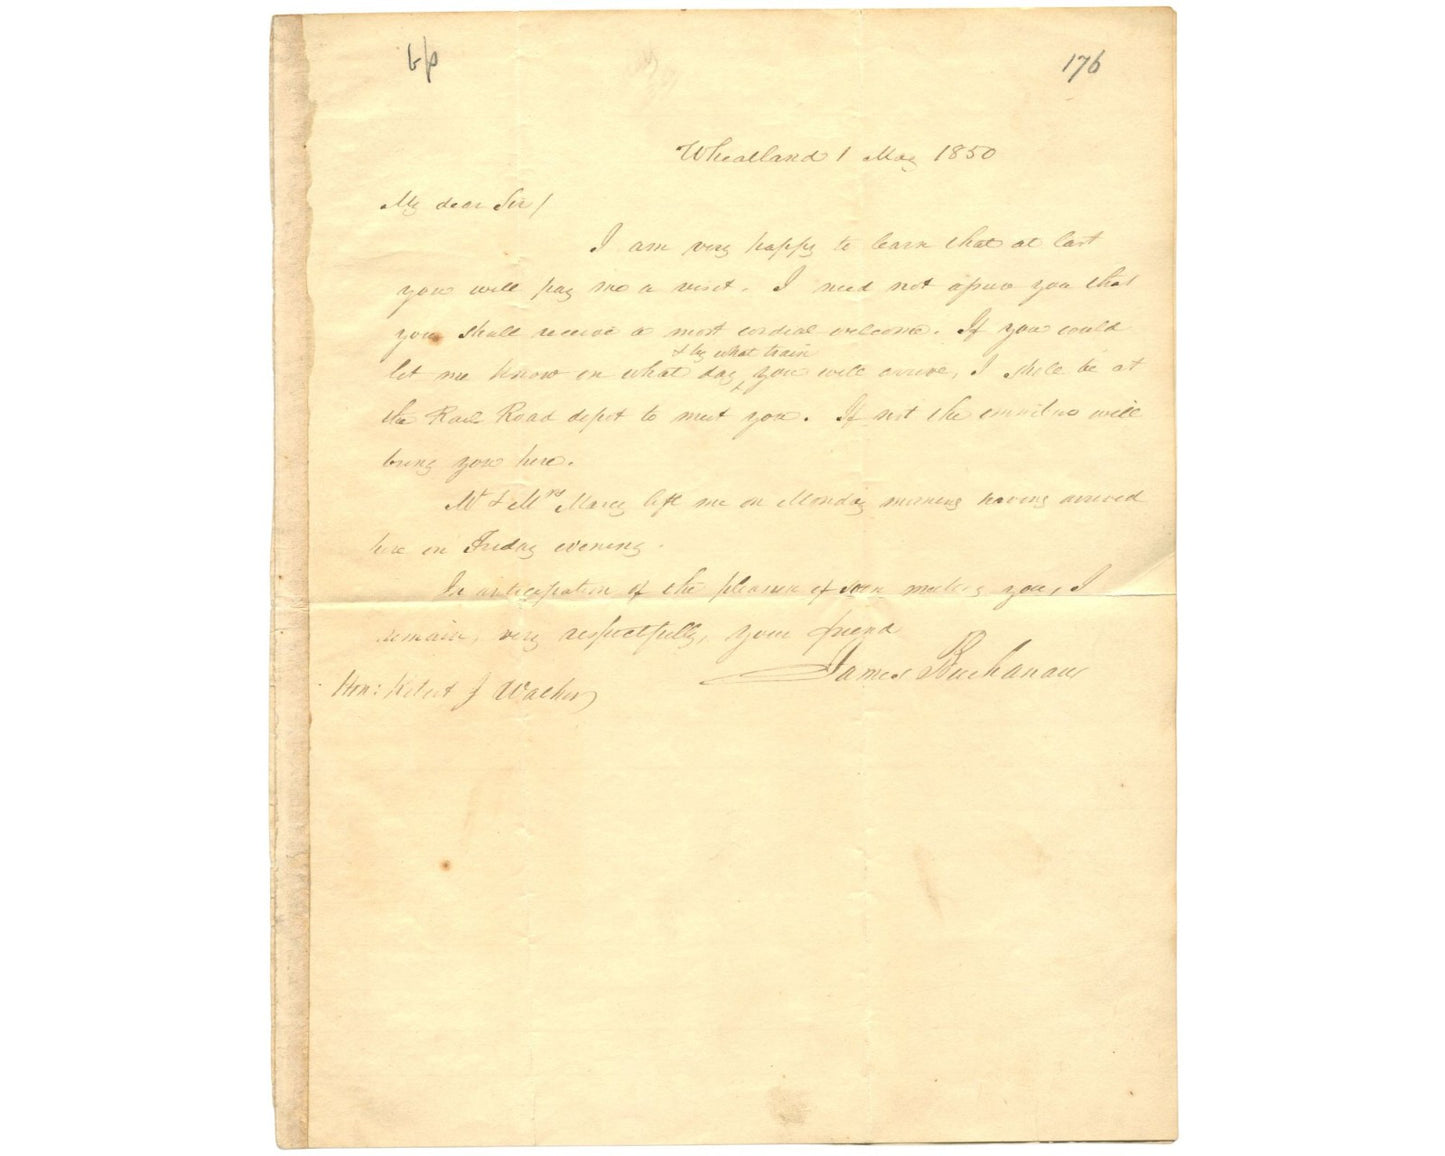 176
Wheatland 1 May 1850
My dear Sir/
I am very happy to learn that at last
you will pay me a visit. I need not assure you that
you shall receive a most cordial welcome. If you could
& by what train
let me know on what day ^ you will arrive, I shall be at
the Rail Road depot to meet you. If not the omnibus will
bring you here.
Mr & Mrs Marcy left me on Monday morning having arrived
here on Friday evening.
In anticipation of the pleasure of soon meeting you, I
remain, very respectfully, your friend
James Buchanan
Hon: Robert J Walker